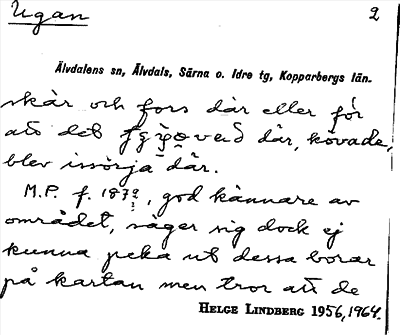 Ugan 2
Älvdalens sn, Älvdals, Särna o. Idre tg, Kopparbergs län.
skär och fors där eller för
att det där, kövade,
blev issörja där.
M.P. f. 1872, god kännare av
området, säger sig dock ej
kunna peka ut dessa
på kartan men tror att de
HELGE LINDBERG 1956, 1964.